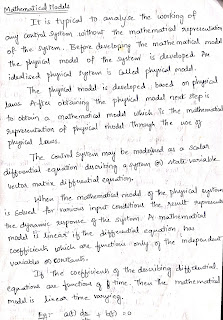 Mathematical Models
It is typical to analyse the working of
any control system without the mathematical representation
of the system. Before developing the mathematical model
the physical model of the system is developed. An
idealised physical system is called physical model.
The physical model is developed, based on physical
laws. After obtaining the physical model next step is
to obtain a mathematical model which is the mathematical
representation of physical model through the use of
physical laws.
The control system may be modelled as a scalar
differential equation describing a system (or) state variable
vector matrix differential equation.
When the mathematical model of the physical system
is solved for various input conditions the result represents
the dynamic response of the system. A mathematical
model is linear if the differential equation, has
coefficients which are functions only of the independent
variable or constants.
If the coefficients of the describing differential
equations are functions of time. Then the mathematical
model is linear time varying.
Eg:- a(t) + b(t) = 0